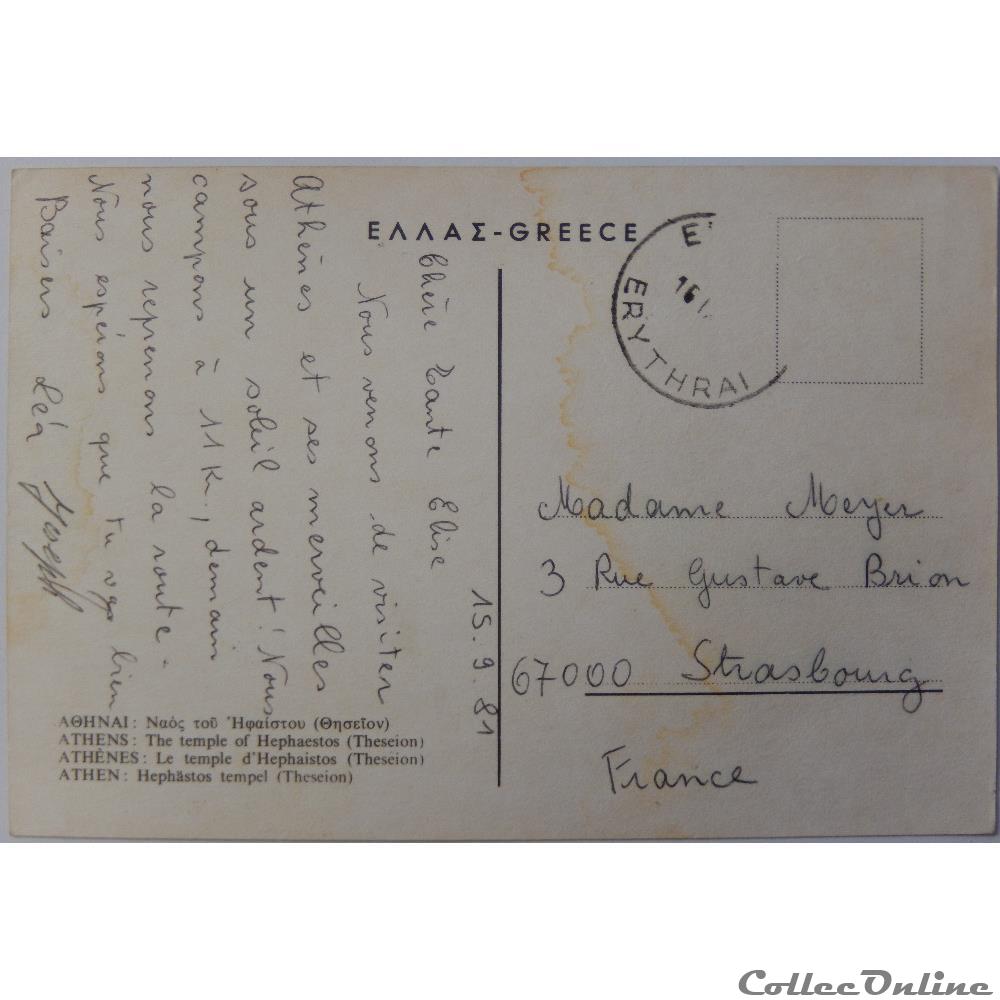 ΕΛΛΑΣ-GREECE
15.9.81
Chère Tante Elise
Nous venons de visiter
Athènes et ses merveilles
sous un soleil ardent! Nous
campons à 11 Km, demain
nous reprenons la route.
Nous espérons que tu vas bien
Baisers Léa Joseph
ΑΘΗΝΑΙ: Ναός τοῦ Ἡφαίστου (Θησεῖον)
ATHENS: The temple of Hephaestos (Theseion)
ATHÈNES: Le temple d'Hephaistos (Theseion)
ATHEN: Hephästos tempel (Theseion)
ERYTHRAI
Madame Meyer
3 Rue Gustave Brion
67000 Strasbourg
France
CollecOnline